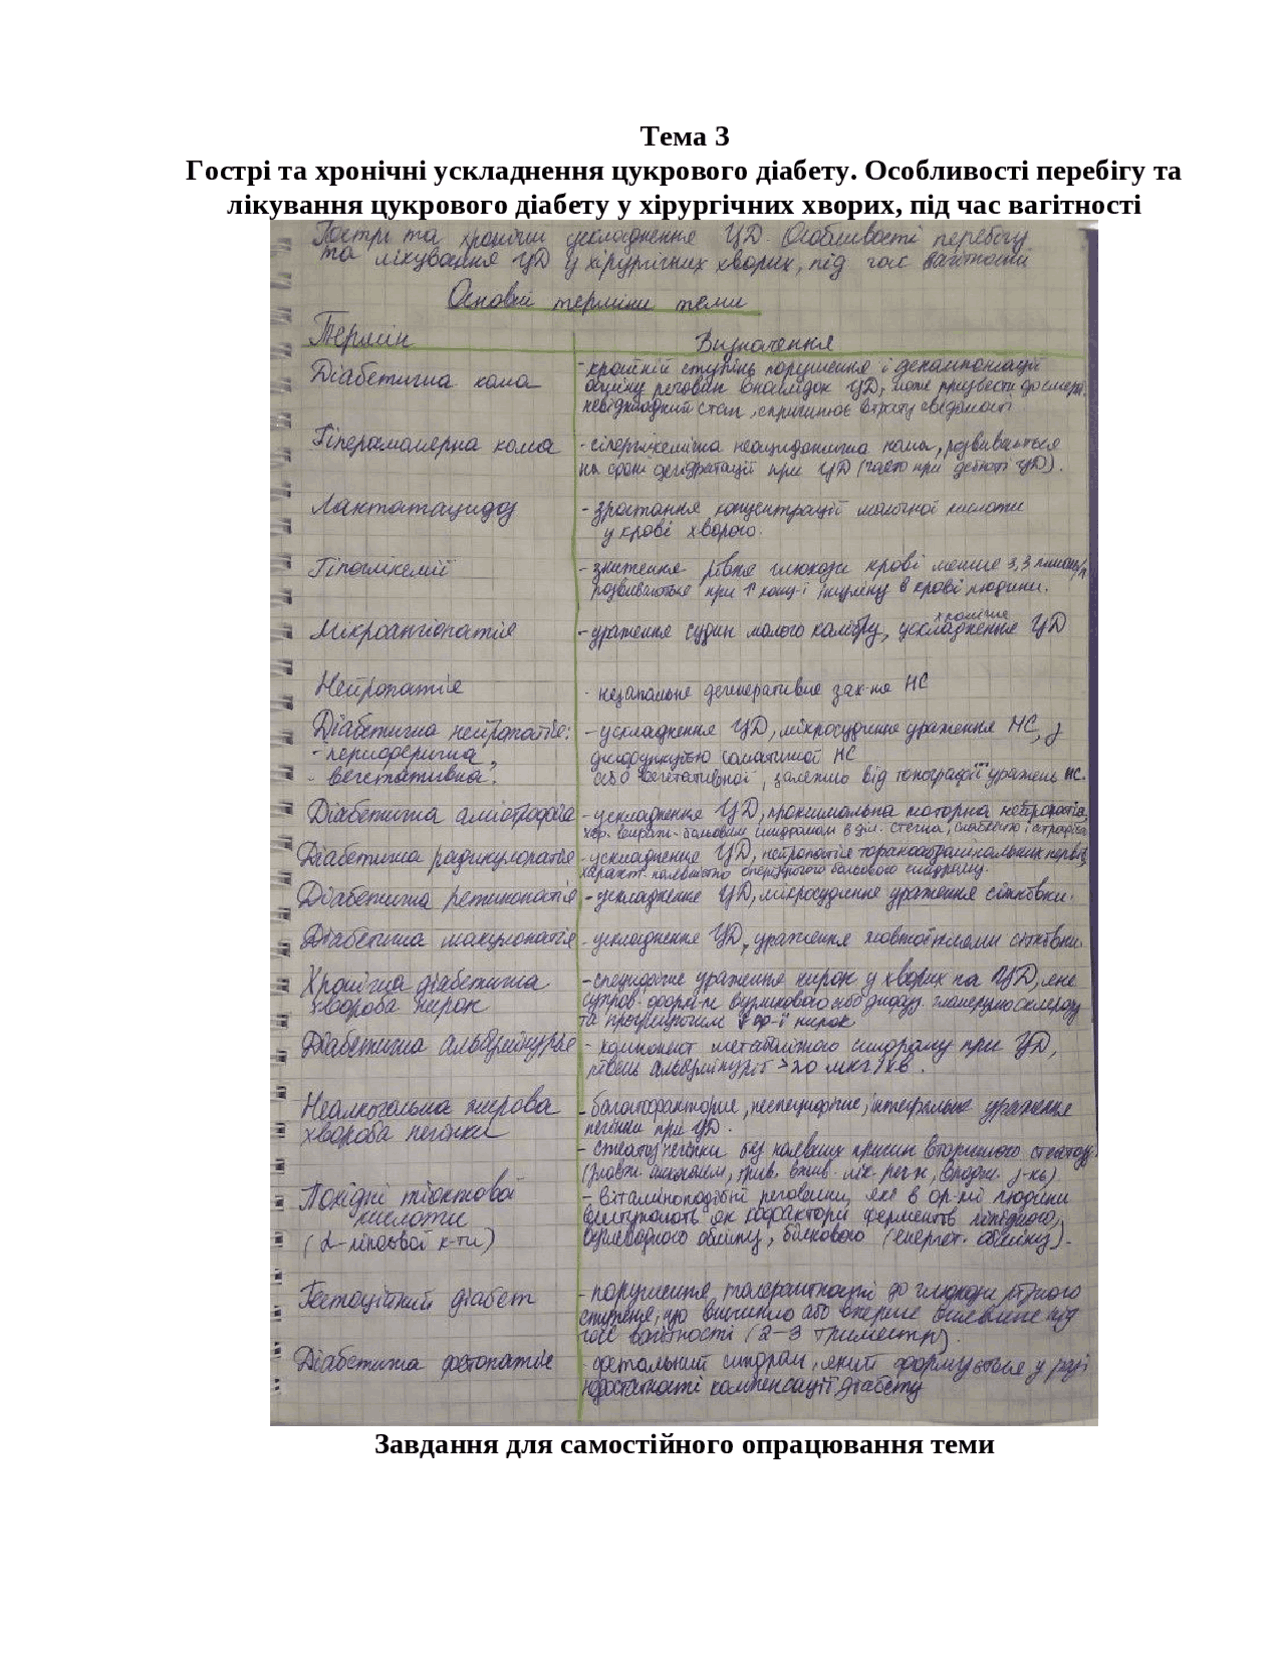 Тема 3
Гострі та хронічні ускладнення цукрового діабету. Особливості перебігу та
лікування цукрового діабету у хірургічних хворих, під час вагітності
Гострі та хронічні ускладнення ЦД. Особливості перебігу
та лікування ЦД у хірургічних хворих, під час вагітності
Основні терміни теми
Термін Визначення
Діабетична кома - крайній ступінь порушення і декомпенсації
обміну речовин внаслідок ЦД, може призвести до смерті,
невідкладний стан, спричинює втрату свідомості.
Гіперосмолярна кома - гіперглікемічна неацидотична кома, розвивається
на фоні дегідратації при ЦД (часто при дебюті ЦД).
Лактатацидоз - зростання концентрації молочної кислоти
у крові хворого.
Гіпоглікемії - зниження рівня глюкози крові менше 3,3 ммоль/л
розвивається при ↑ конц-ї інсуліну в крові людини.
хронічне
Мікроангіопатія - ураження судин малого калібру, ускладнення ЦД
Нейропатія - незапальне дегенеративне зах-ня НС
Діабетична нейропатія: - ускладнення ЦД, мікросудинне ураження НС, з
- периферична, дисфункцією соматичної НС
- вегетативна. або вегетативної, залежно від топографії уражень НС.
Діабетична аміотрофія - ускладнення ЦД, проксимальна моторна нейропатія,
хар. вираж. больовим синдромом в діл. стегна, слабкістю і атрофією
Діабетична радикулопатія - ускладнення ЦД, нейропатія торакоабдомінальних нервів,
характ. наявністю оперізуючого больового синдрому.
Діабетична ретинопатія - ускладнення ЦД, мікросудинне ураження сітківки.
Діабетична макулопатія - ускладнення ЦД, ураження жовтої плями сітківки.
Хронічна діабетична - специфічне ураження нирок у хворих на ЦД, яке
хвороба нирок супров. форм-м вузликового або дифуз. гломерулосклерозу
та прогресуючим ↓ ф-ї нирок
Діабетична альбумінурія - компонент метаболічного синдрому при ЦД,
рівень альбумінурії >20 мкг/хв.
Неалкогольна жирова - багатофакторне, неспецифічне, інтегральне ураження
хвороба печінки печінки при ЦД.
- стеатоз печінки без наявних причин вторинного стеатозу
Похідні тіоктової - вітаміноподібні речовини, які в ор-мі людини
кислоти виступають як кофактори ферментів ліпідного,
(α-ліпоєвої к-ти) вуглеводного обміну, білкового (енергет. обміну).
Гестаційний діабет - порушення толерантності до глюкози різного
ступеня, що виникло або вперше виявлене під
час вагітності (2-3 триместр).
Діабетична фетопатія - фетальний синдром, який формується у разі
недостатності компенсації діабету
Завдання для самостійного опрацювання теми